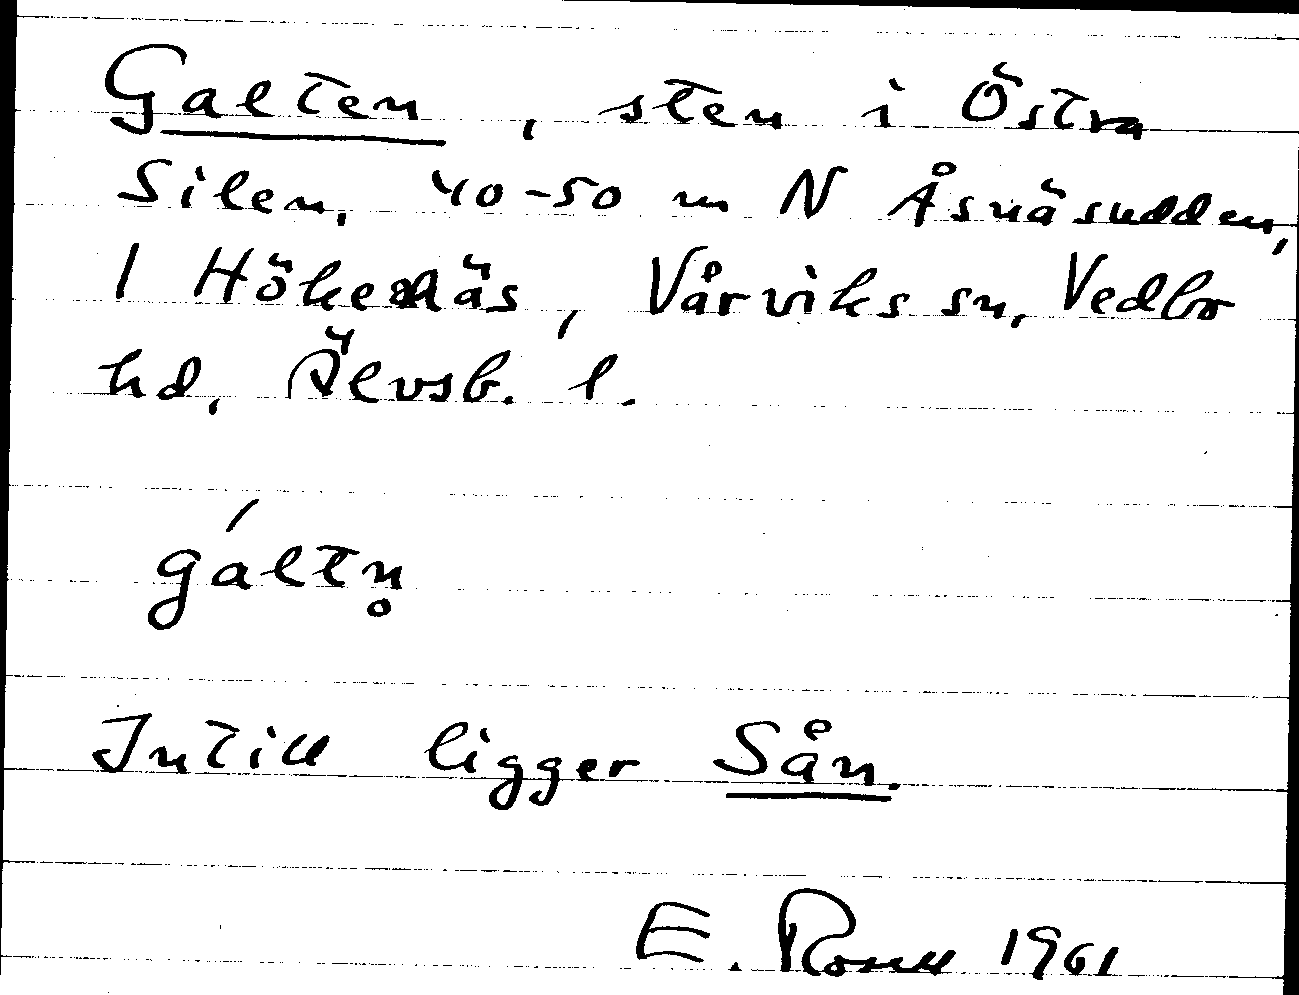 Galten, sten i Östra
Silen, 40-50 m N Åsnäsudden,
1 Hökenäs, Vårviks sn, Vedbo
hd, Älvsb. l.
gáltn̥
Intill ligger Sån.
E. Rosell 1961